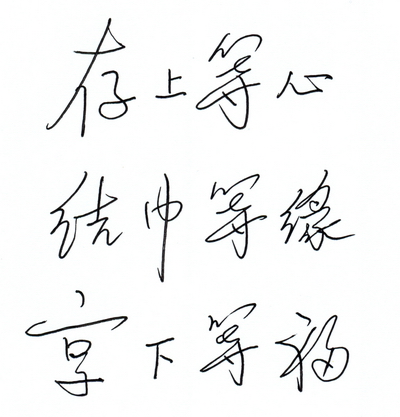 存上等心
结中等缘
享下等福